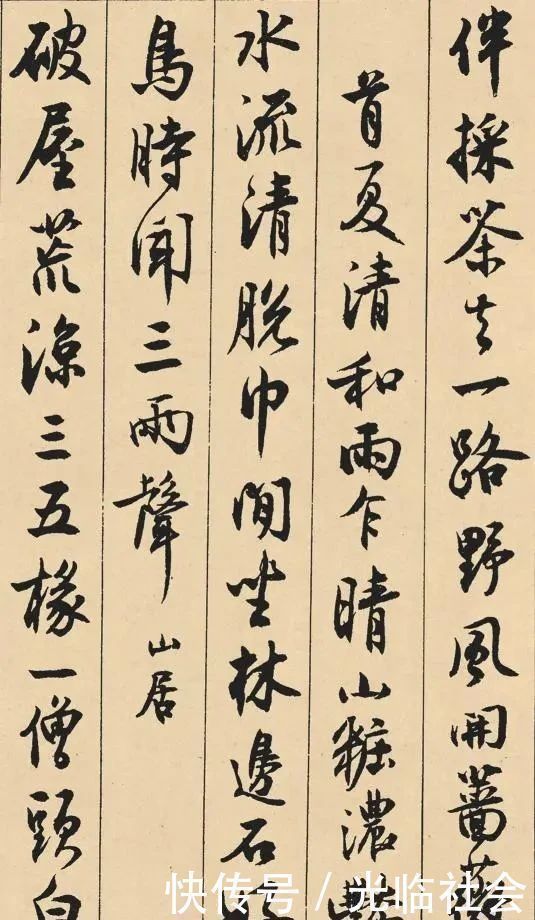 伴採茶去一路野風開薔薇
首夏清和雨乍晴山粧濃
水流清脫巾閒坐林邊石
鳥時聞三兩聲 山居
破屋荒涼三五椽一僧頭白
快传号 / 光临社会